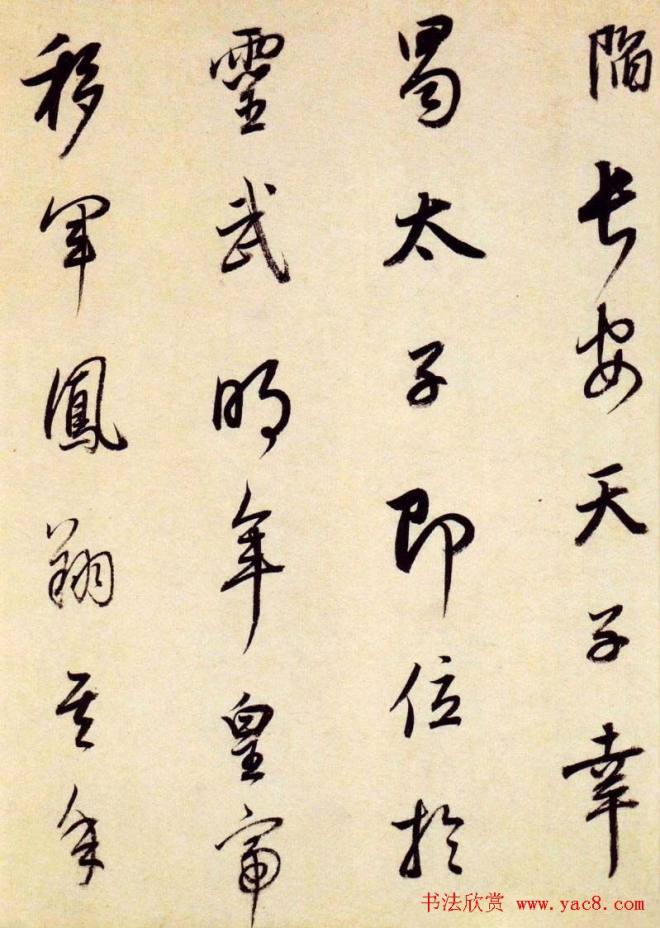 陷长安天子幸
蜀太子即位於
靈武明年皇帝
移军鳳翔其年
书法欣赏 www.yac8.com